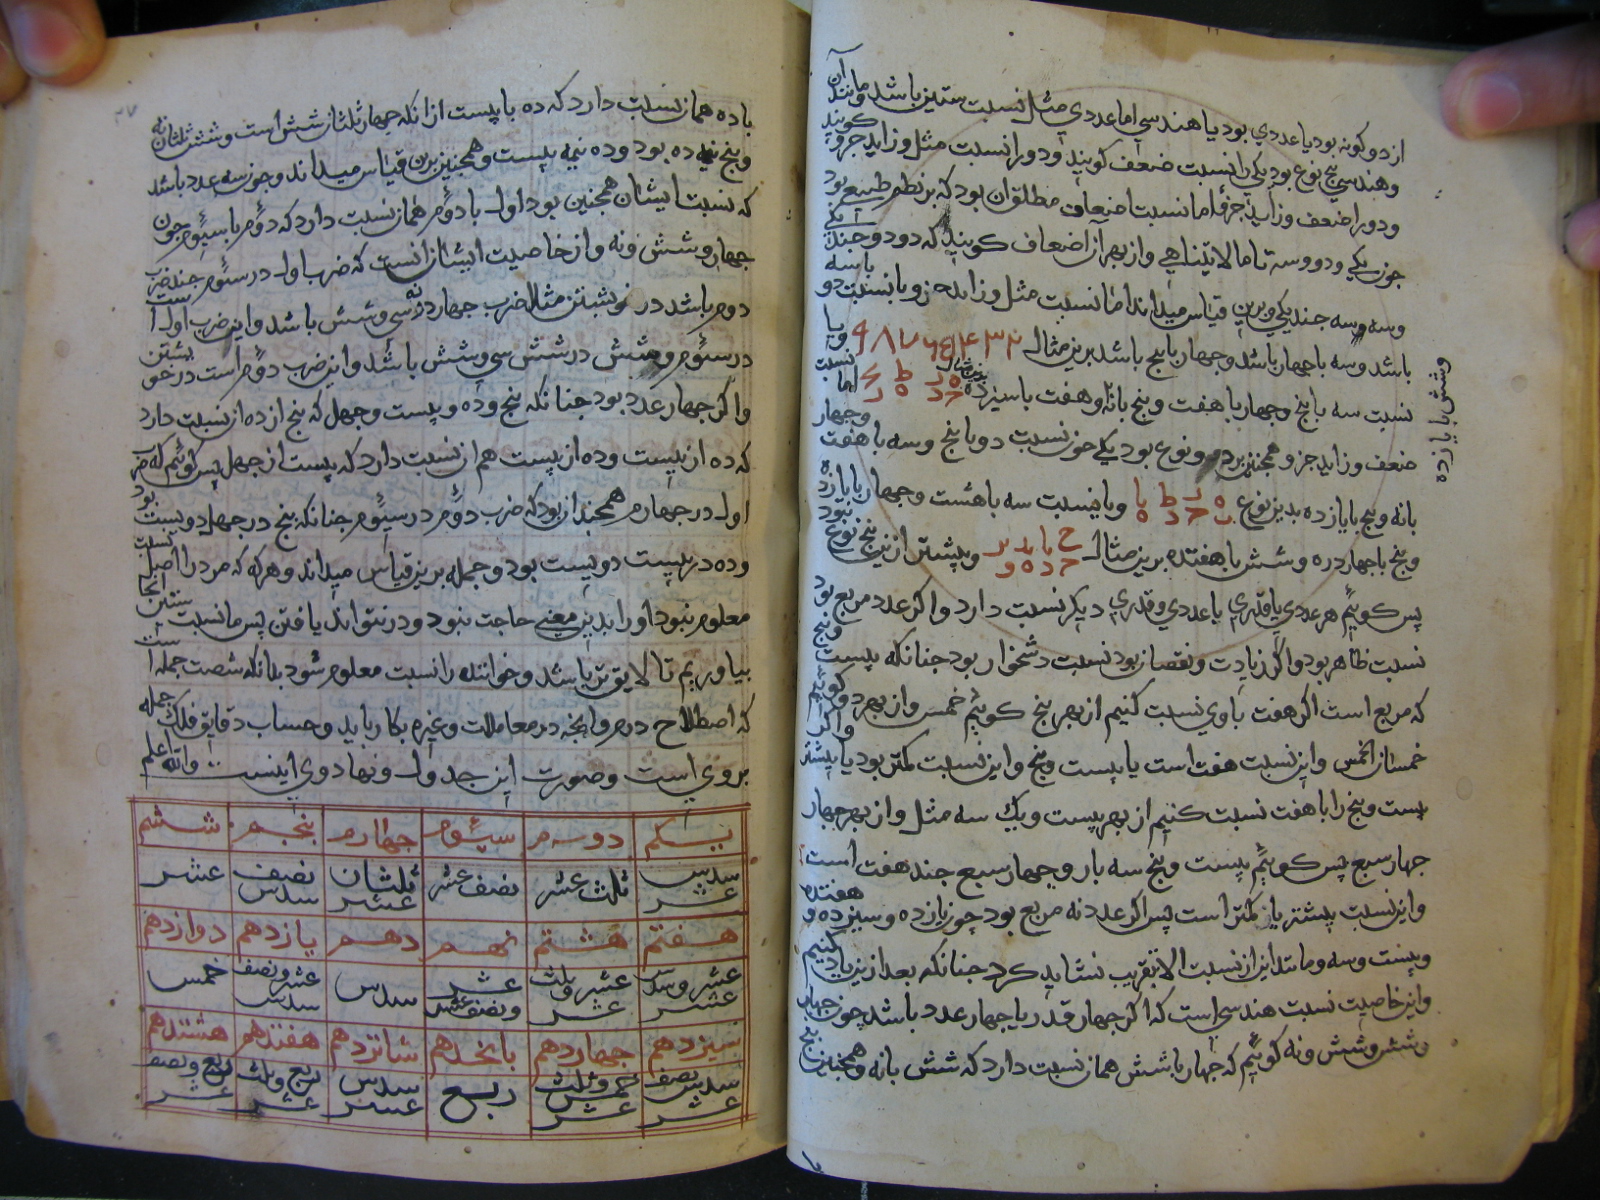 از دو کونه بود یا عددي بود یا هندسي اما عددي مثل نسبت ستین باشد و مانند آن
و هندسي پنج نوع بود یکي را نسبت ضعف کویند و دو را نسبت مثل و زاید جزو کویند
و دو را ضعف و زاید جزو اما نسبت اضعاف مطلق آن بود که بر نظم طبیعي بود
چون یکي و دو و سه تا ما لا یتناهي و از بهر آن اضعاف کویند که دو دو چند یکي
و سه سه چند یکي و برین قیاس میداند اما نسبت مثل و زاید جزو یا نسبت دو با سه
باشد و سه با چهار باشد و چهار با پنج باشد برین مثال و یا
نسبت سه با پنج و چهار با هفت و پنج با نه و هفت با سیزده نسبت اما
ضعف و زاید جزو همچنین بر دو نوع بود یکي چون نسبت دو با پنج و سه با هفت و چهار
با نه و پنج با یازده بدین نوع و یا نسبت سه با هشت و چهار با یازده
و پنج با چهارده و شش با هفتده برین مثال و بیشتر ازین پنج نوع نبود
پس کوییم هر عددي یا قدري با عددي و قدري دیکر نسبت دارد و اکر عدد مربع بود
نسبت ظاهر بود و اکر زیادت و نقصان بود نسبت دشخوار بود چنانکه بیست و پنج
که مربع است اکر هفت با وي نسبت کنیم از بهر پنج کوییم خمس و از بهر دو کوییم
خمسان الخمس و این نسبت هفت است با بیست و پنج و این نسبت کمتر بود یا بیشتر و اکر
بیست و پنج را با هفت نسبت کنیم از بهر بیست و یک سه مثل و از بهر چهار
چهار سبع پس کوییم بیست و پنج سه بار و چهار سبع چند هفت است
و این نسبت بیشتر یا کمتر است پس اکر عدد نه مربع بود چون یازده و سیزده و هفتده
و بیست و سه و مانند این از نسبت الا بتقریب نشاید کرد چنانکه بعد ازین یاد کنیم
و این خاصیت نسبت هندسي است که اکر چهار قدر یا چهار عدد باشد چون چهار
و شش و شش و نه کوییم که چهار با شش همان نسبت دارد که شش با نه و همچنین پنج
و شش با یازده
با ده همان نسبت دارد که ده با بیست از آنکه چهار ثلثان شش است و شش ثلثان نه
و پنج نیمه ده بود و ده نیمه بیست و همچنین برین قیاس میداند و چون سه عدد باشد
که نسبت ایشان همچنین بود اول با دوم همان نسبت دارد که دوم با سیوم چون
چهار و شش و نه و از خاصیت ایشان آنست که ضرب اول در سیوم چند ضرب
دوم باشد در خویشتن مثلا ضرب چهار در نه سي و شش باشد و این ضرب اول است
در سیوم و شش در شش سي و شش باشد و این ضرب دوم است در خویشتن
و اکر چهار عدد بود چنانکه پنج و ده و بیست و چهل که پنج از ده آن نسبت دارد
که ده از بیست و ده از بیست هم آن نسبت دارد که بیست از چهل پس کوییم که ضرب
اول در چهارم همچندان بود که ضرب دوم در سیوم چنانکه پنج در چهل دویست بود
و ده در بیست دویست بود و جمله برین قیاس میداند و هر که مر درا اصل نسبت
معلوم نبود او را بدین معني حاجت نبود و در نتواند یافتن پس ما نسبت ستین اینجا
بیاوریم تا لایق تر باشد و خواننده را نسبت معلوم شود بدانکه شصت جمله است
که اصطلاح درم و آنچه در معاملات و غیره بکار باید و حساب دقایق فلک جمله
بروي است و صورت این جداول و نهادوي اینست والله اعلم
یکم دوم سیوم چهارم پنجم ششم
سدس عشر ثلث عشر نصف عشر ثلثان عشر نصف سدس عشر
هفتم هشتم نهم دهم یازدهم دوازدهم
عشر و سدس عشر عشر و ثلث عشر عشر و نصف عشر سدس عشر و نصف سدس خمس
سیزدهم چهاردهم پانزدهم شانزدهم هفتدهم هشتدهم
سدس نصف عشر خمس و ثلث عشر ربع سدس عشر ربع و ثلث عشر ربع و نصف عشر